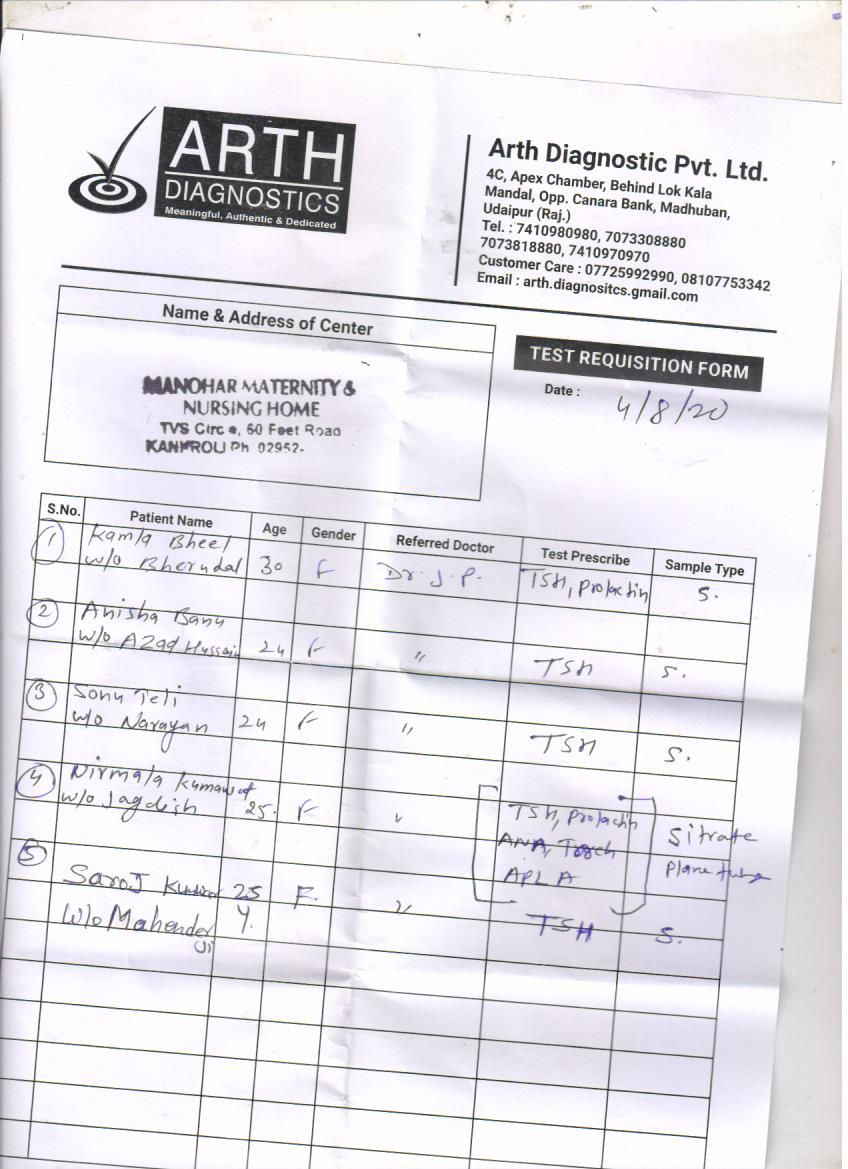 ARTH
DIAGNOSTICS
Meaningful, Authentic & Dedicated
Arth Diagnostic Pvt. Ltd.
4C, Apex Chamber, Behind Lok Kala
Mandal, Opp. Canara Bank, Madhuban,
Udaipur (Raj.)
Tel. : 7410980980, 7073308880
7073818880, 7410970970
Customer Care : 07725992990, 08107753342
Email : arth.diagnositcs.gmail.com
Name & Address of Center
MANOHAR MATERNITY &
NURSING HOME
TVS Circ e, 60 Feet Road
KANKROLI Ph 02952-
TEST REQUISITION FORM
Date : 4/8/20
S.No. Patient Name Age Gender Referred Doctor Test Prescribe Sample Type
1 Kamla Bheel
w/o Bherulal 30 F Dr. J. P. TSH, Prolactin S.
2 Anisha Banu
w/o Azad Hussain 24 F " TSH S.
3 Sonu Teli
w/o Narayan 24 F " TSH S.
4 Nirmala Kumawat
w/o Jagdish 25. F " TSH, Prolactin Sitrate
ANA, Torch Plane tube
APL A
5 Saroj 25 F.
W/o Mahender Y. " TSH S.
Ji